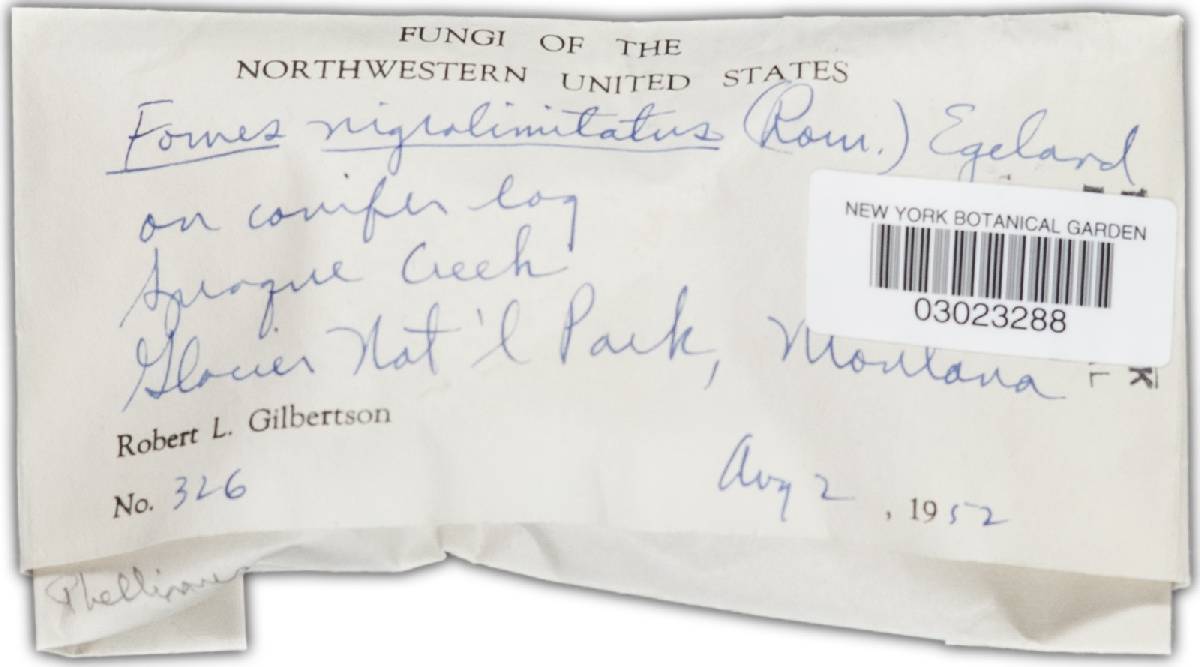 FUNGI OF THE
NORTHWESTERN UNITED STATES
Fomes nigrolimitatus (Rom.) Egeland
on conifer log
Sprague Creek
Glacier Nat'l Park, Montana
NEW YORK BOTANICAL GARDEN
03023288
Robert L. Gilbertson
No. 326
Aug 2, 1952